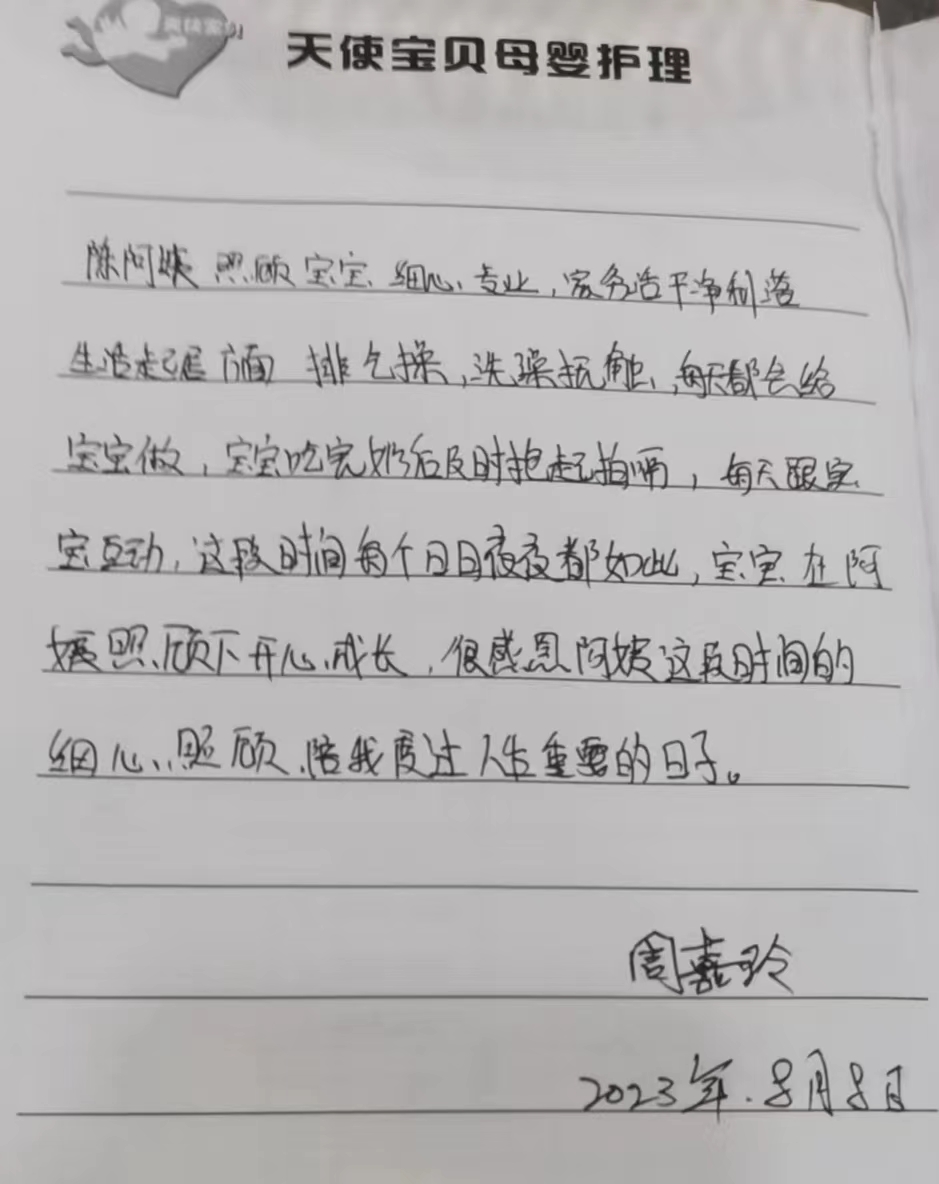 天使宝贝母婴护理
陈阿姨 照顾宝宝细心、专业，家务活干净利落
生活起居方面 排气操，洗澡抚触，每天都会给
宝宝做，宝宝吃完奶后及时抱起拍嗝，每天跟宝
宝互动，这段时间每个日日夜夜都如此，宝宝在阿
姨照顾下开心成长，很感恩阿姨这段时间的
细心照顾、陪我度过人生重要的日子。
周嘉玲
2023年.8月8日